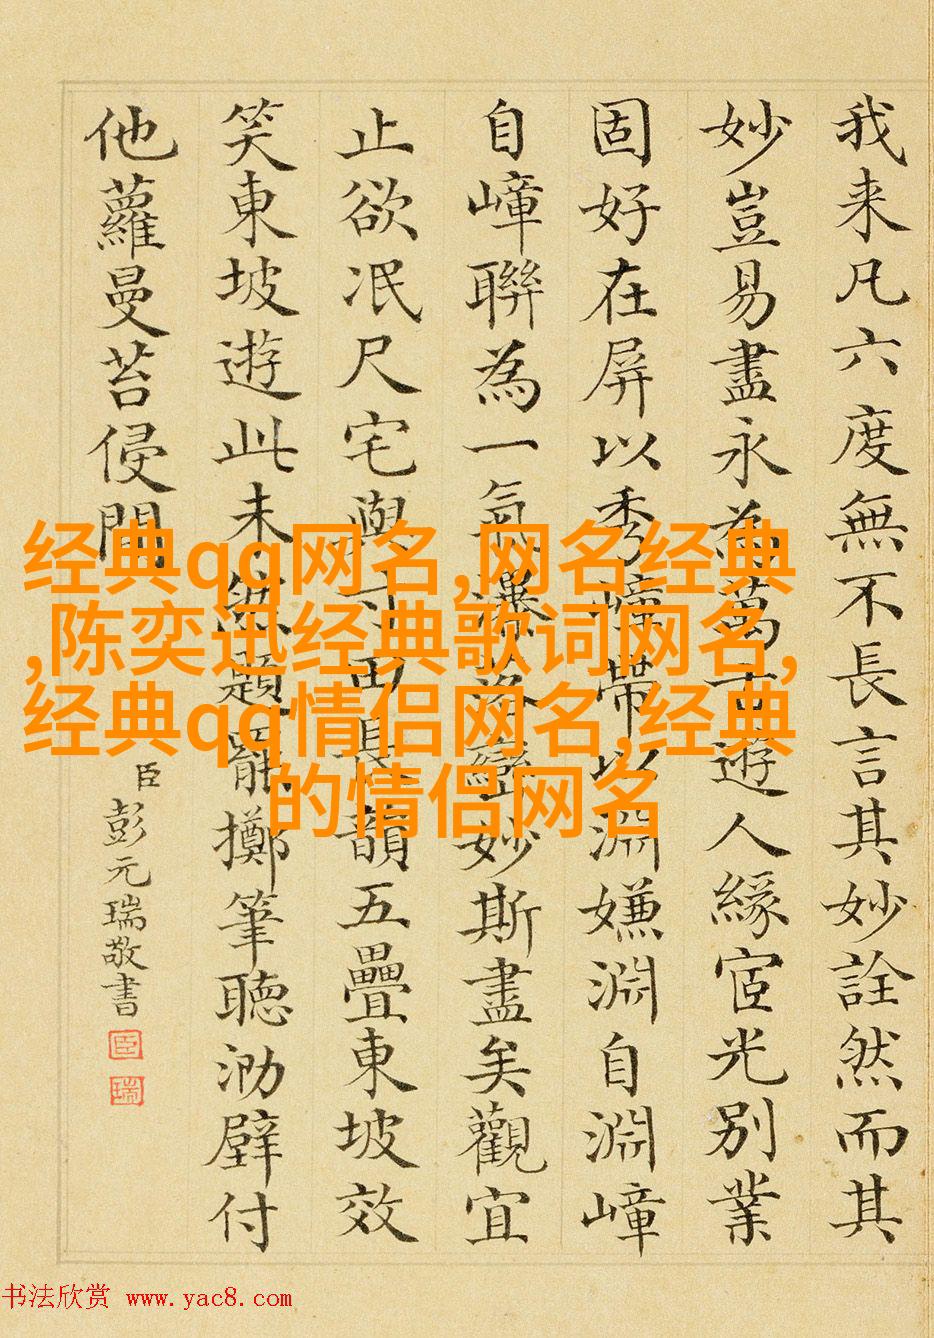 我来凡六度無不長言其妙詮然而其
妙豈易盡永為萬古遊人緣宧光別業
固好在屏以秀嶂帶以淵嫌淵自淵嶂
自嶂聯為一氣瀑落蠻妙斯盡矣觀宜
止欲泯尺宅與寸田具韻五疊東坡效
笑東坡遊此未無題罷擲筆聽泐壁付
他蘿曼苔侵間
臣彭元瑞敬書
臣
瑞
经典qq网名,网名经典
,陈奕迅经典歌词网名,
经典qq情侣网名,经典
的情侣网名
书法欣赏 www.yac8.com